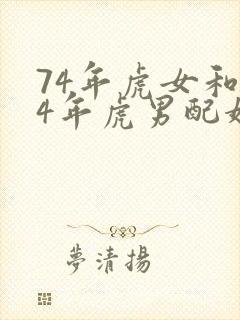 74年虎女和
4年虎男配
夢清揚